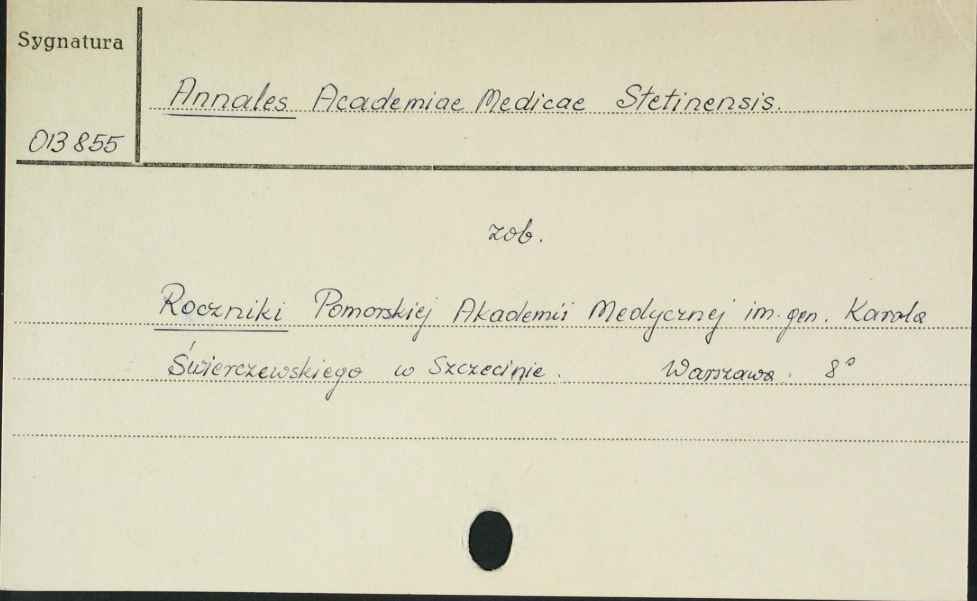 Sygnatura
Annales Academiae Medicae Stetinensis.
013855
zob.
Roczniki Pomorskiej Akademii Medycznej im. gen. Karola
Świerczewskiego w Szczecinie. Warszawa. 8°